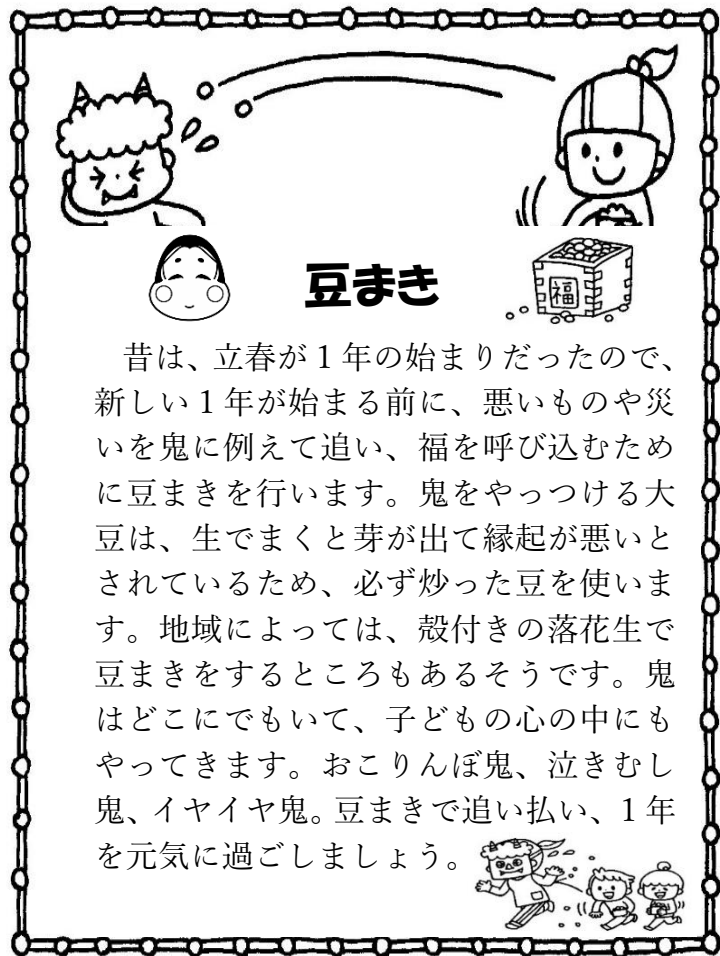 豆まき
福
昔は、立春が1年の始まりだったので、
新しい1年が始まる前に、悪いものや災
いを鬼に例えて追い、福を呼び込むため
に豆まきを行います。鬼をやっつける大
豆は、生でまくと芽が出て縁起が悪いと
されているため、必ず炒った豆を使いま
す。地域によっては、殻付きの落花生で
豆まきをするところもあるそうです。鬼
はどこにでもいて、子どもの心の中にも
やってきます。おこりんぼ鬼、泣きむし
鬼、イヤイヤ鬼。豆まきで追い払い、1年
を元気に過ごしましょう。